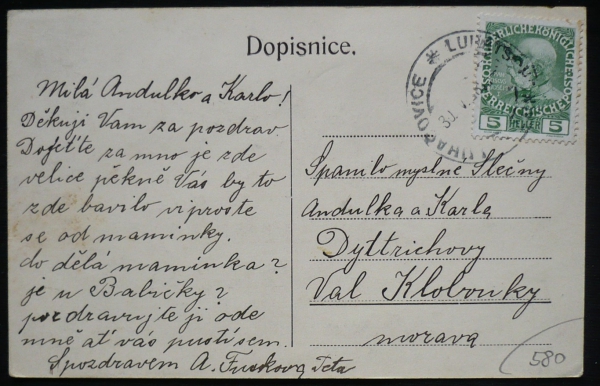 Dopisnice.
Milá Andulko a Karlo!
Děkuji Vam za pozdrav
Dojeťte za mno je zde
velice pěkně Vás by to
zde bavilo viproste
se od maminky.
do dělá maminka?
je u Babičky?
pozdravujte ji ode
mně ať vás pustí sem.
Spozdravem A. Fuskova Teta
LUHATSCHOWITZ
LUHAČOVICE
5 HELLER 5
Spanilo myslné Slečny
Andulka a Karla
Dyttrichovy
Val Klobouky
morava
580